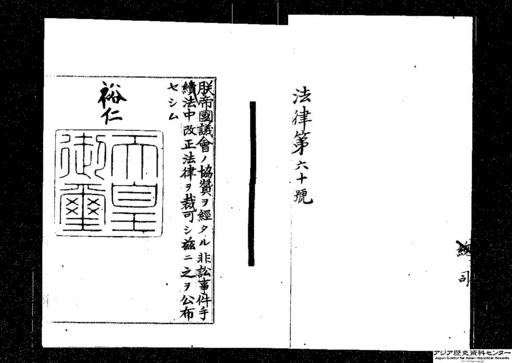 法律第六十號
朕帝國議會ノ協贊ヲ經タル非訟事件手
續法中改正法律ヲ裁可シ茲ニ之ヲ公布
セシム
裕仁
天皇
御璽
アジア歴史資料センター
Japan Center for Asian Historical Records